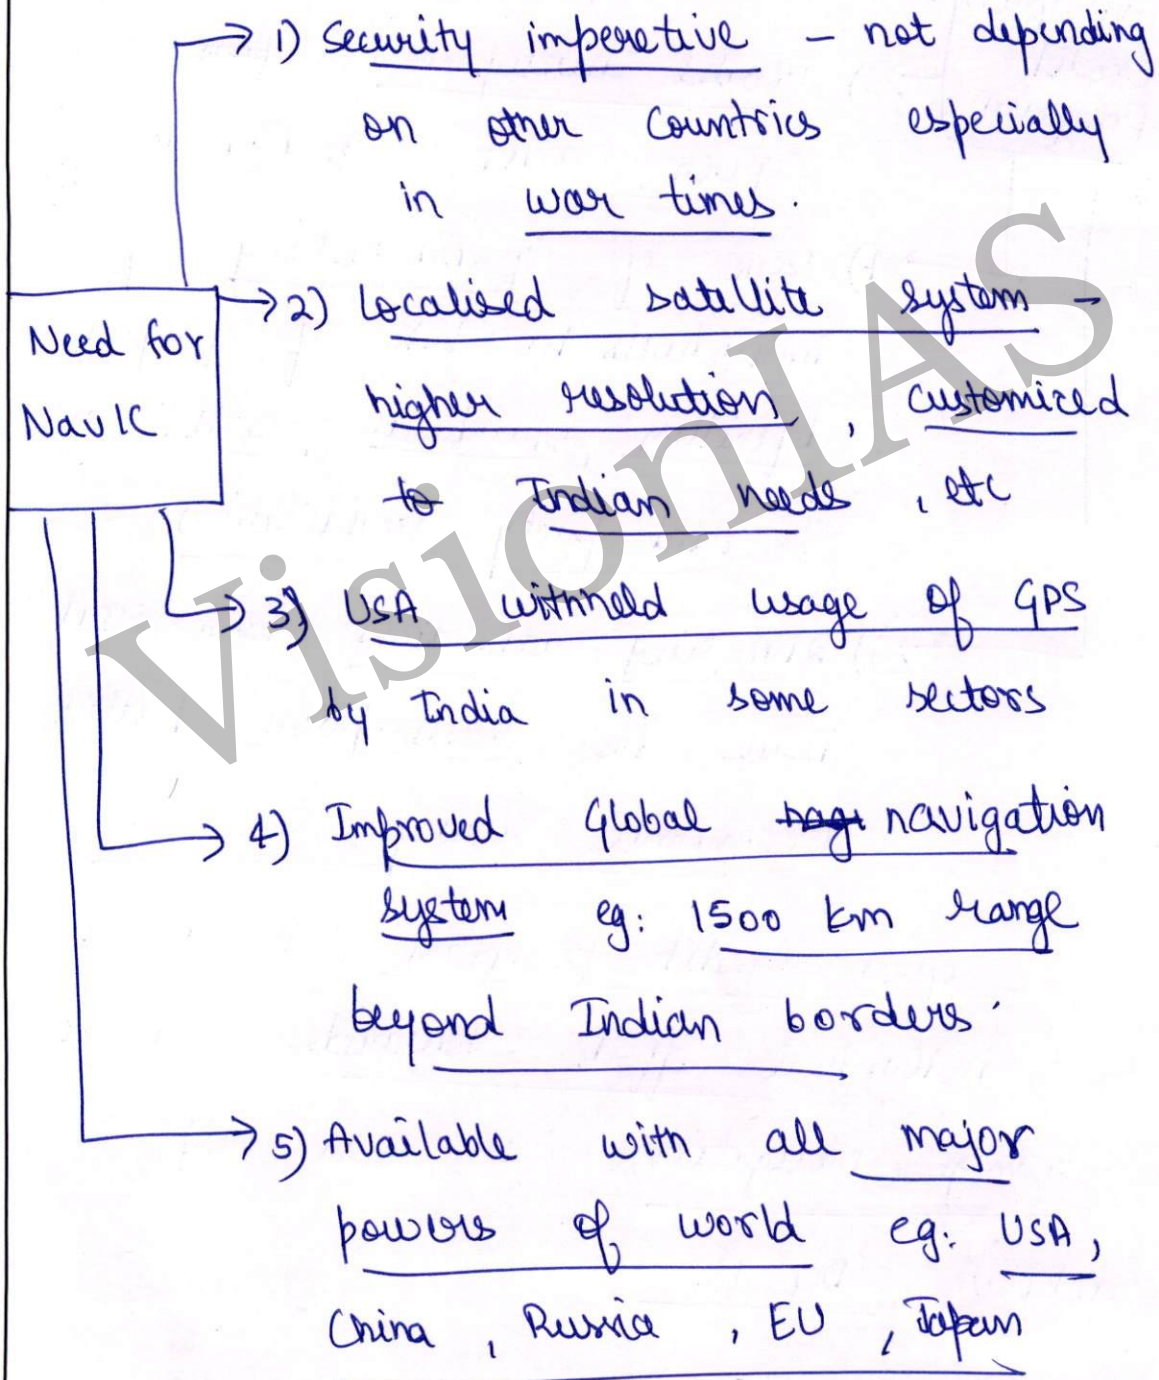 1) Security imperative - not depending
on other countries especially
in war times.
Need for
NavIC
2) Localised satellite system -
higher resolution, customized
to Indian needs, etc
3) USA withheld usage of GPS
by India in some sectors
4) Improved Global navigation
system eg: 1500 km range
beyond Indian borders.
5) Available with all major
powers of world eg: USA,
China, Russia, EU, Japan
VisionIAS